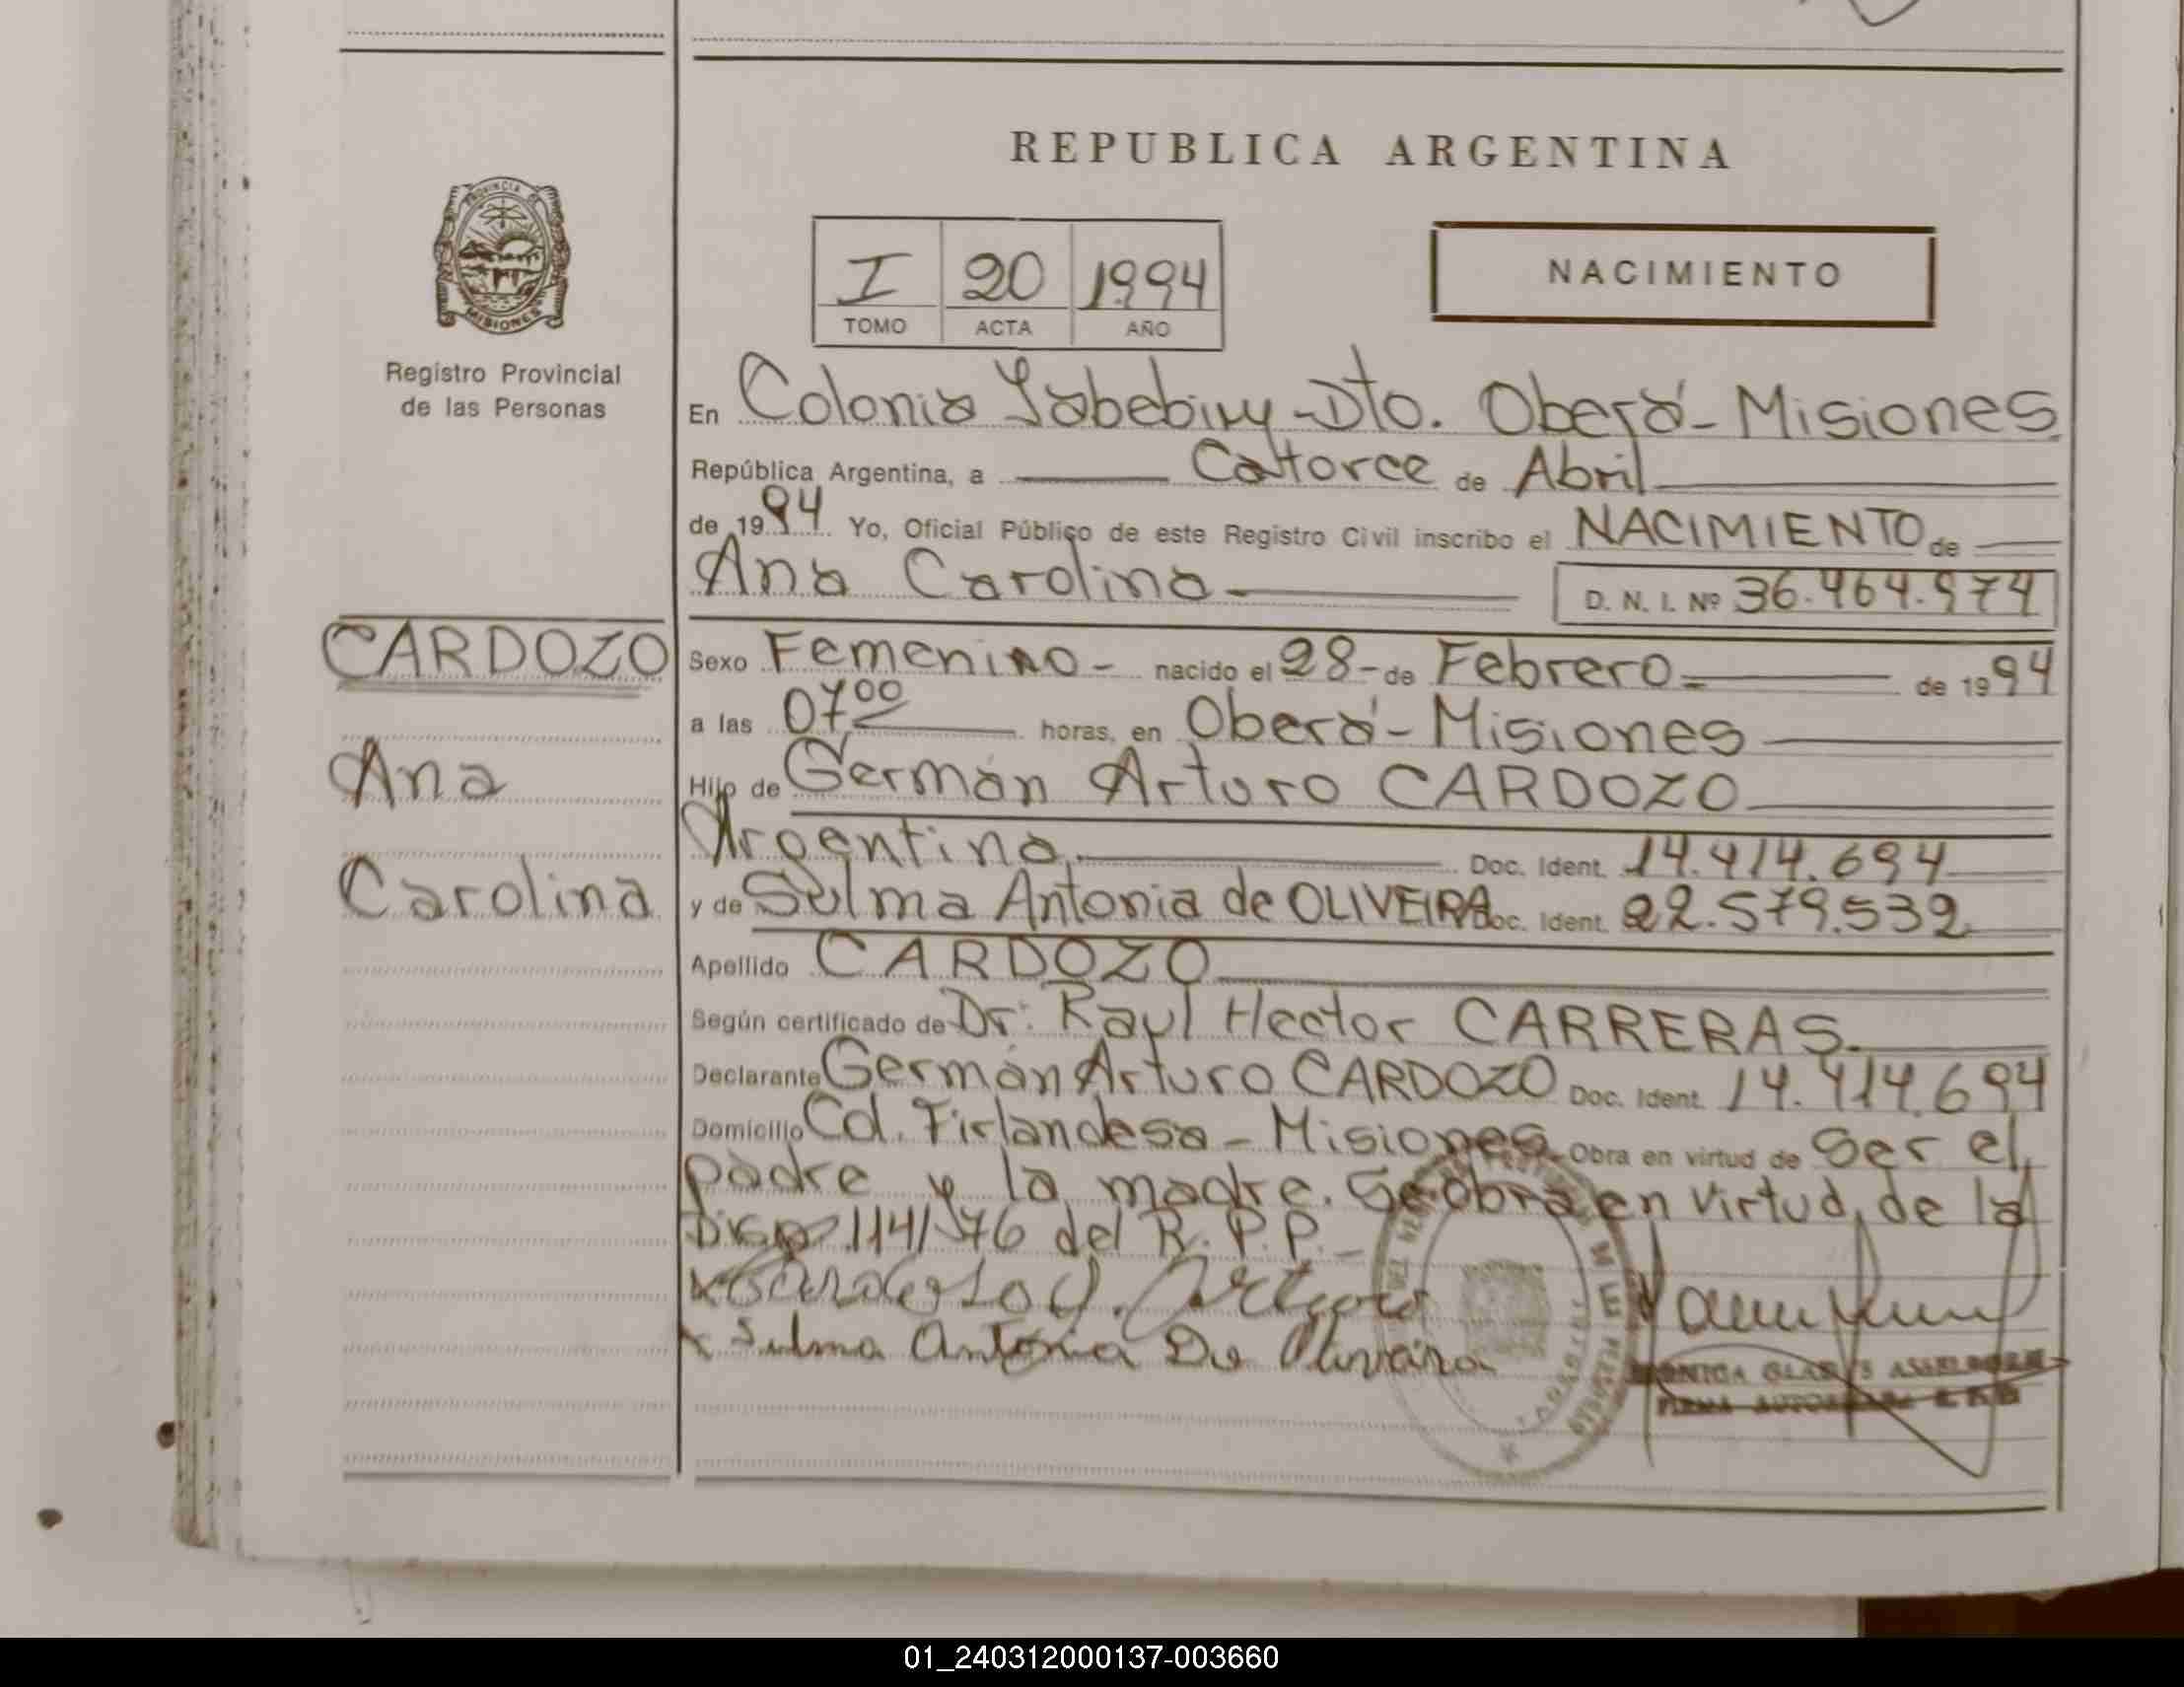 REPUBLICA ARGENTINA
PROVINCIA DE
MISIONES
Registro Provincial
de las Personas
I 20 1994
TOMO ACTA AÑO
NACIMIENTO
En Colonia Yabebiry - Dto. Oberá - Misiones
República Argentina, a Catorce de Abril
de 1994 Yo, Oficial Público de este Registro Civil inscribo el NACIMIENTO de
Ana Carolina D. N. I. Nº 36.464.974
CARDOZO
Ana
Carolina
Sexo Femenino - nacido el 28 - de Febrero = de 1994
a las 07 00 horas, en Oberá - Misiones
Hijo de Germán Arturo CARDOZO
Argentino. Doc. Ident. 14.414.694
y de Sulma Antonia de OLIVEIRA Doc. Ident. 22.579.532
Apellido CARDOZO
Según certificado de Dr: Raul Hector CARRERAS.
Declarante Germán Arturo CARDOZO Doc. Ident. 14.414.694
Domicilio Col. Finlandesa - Misiones Obra en virtud de ser el
padre y la madre. Se obra en virtud de la
Disp 114/76 del R.P.P. -
x Cardozo G. Arturo
x Sulma Antonia De Oliveira
MONICA GLADYS
FIRMA AUTORIZADA
01_240312000137-003660